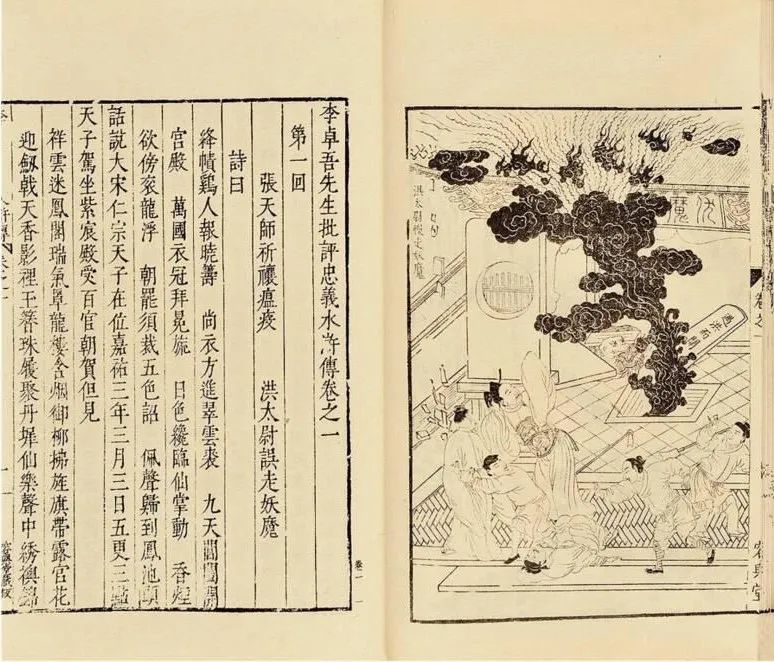 伏魔
洪太尉誤走妖魔
遇洪而開
容與堂
李卓吾先生批評忠義水滸傳卷之一
第一回
張天師祈禳瘟疫　洪太尉誤走妖魔
詩曰
絳幘鷄人報曉籌　尚衣方進翠雲裘　九天閶闔開
宮殿　萬國衣冠拜冕旒　日色纔臨仙掌動　香煙
欲傍袞龍浮　朝罷須裁五色詔　佩聲歸到鳳池頭
話說大宋仁宗天子在位嘉祐三年三月三日五更三點
天子駕坐紫宸殿受百官朝賀但見
祥雲迷鳳閣瑞氣罩龍樓含烟御柳拂旌旗帶露宮花
迎劍戟天香影裡玉簪珠履聚丹墀仙樂聲中綉襖錦
卷一